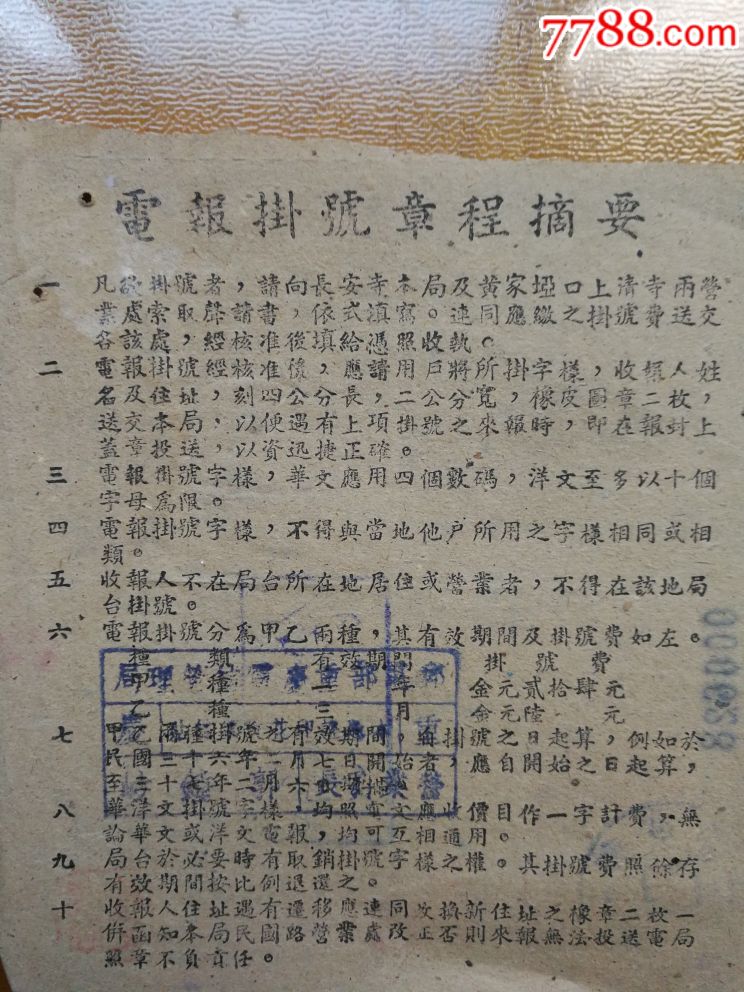 7788.com
電報掛號章程摘要
一 凡欲掛號者，請向長安寺本局及黃家埡口上清寺兩營
業處索取聲請書，依式填寫。連同應繳之掛號費送交
各該處，經核准後填給憑照收執。
二 電報掛號經核准後，應請用戶將所掛字樣，收報人姓
名及住址，刻四公分長，二公分寬，橡皮圖章二枚，
送交本局，以便遇有上項掛號之來報時，即在報封上
蓋章投送，以資迅捷正確。
三 電報掛號字樣，華文應用四個數碼，洋文至多以十個
字母為限。
四 電報掛號字樣，不得與當地他戶所用之字樣相同或相
類。
五 收報人不在局台所在地居住或營業者，不得在該地局
台掛號。
六 電報掛號分為甲乙兩種，其有效期間及掛號費如左。
種類 有效期間 掛號費
甲種 一年 金元貳拾肆元
乙種 三月 金元陸元
七 甲乙兩種掛號有效期間，自掛號之日起算，例如於
應自開始之日起算，
至
八 華洋文掛號字樣 均照 文 應收價目作一字計費，無
論華文或洋文電報，均可互相通用。
九 局台於必要時有取銷掛號字樣之權。其掛號費照餘存
有效期間按比例退還之。
十 收報人住址遇有遷移應連同改換新住址之橡章二枚一
併函知本局國民路營業處改正否則來報無法投送電局
照章不負責任。
000638